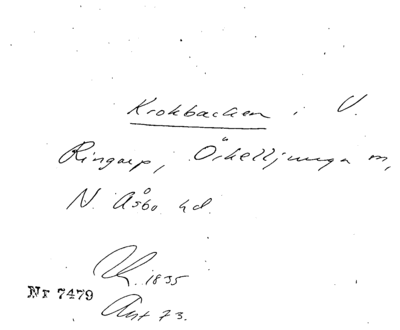 Krokbacken i V.
Ringarp, Örkelljunga sn,
N. Åsbo hd.
1835
Nr 7479
Ant 73.